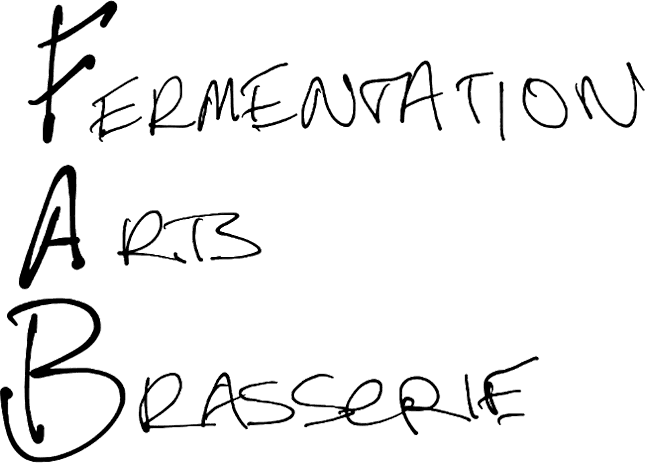 FERMENTATION
ARTS
BRASSERIE